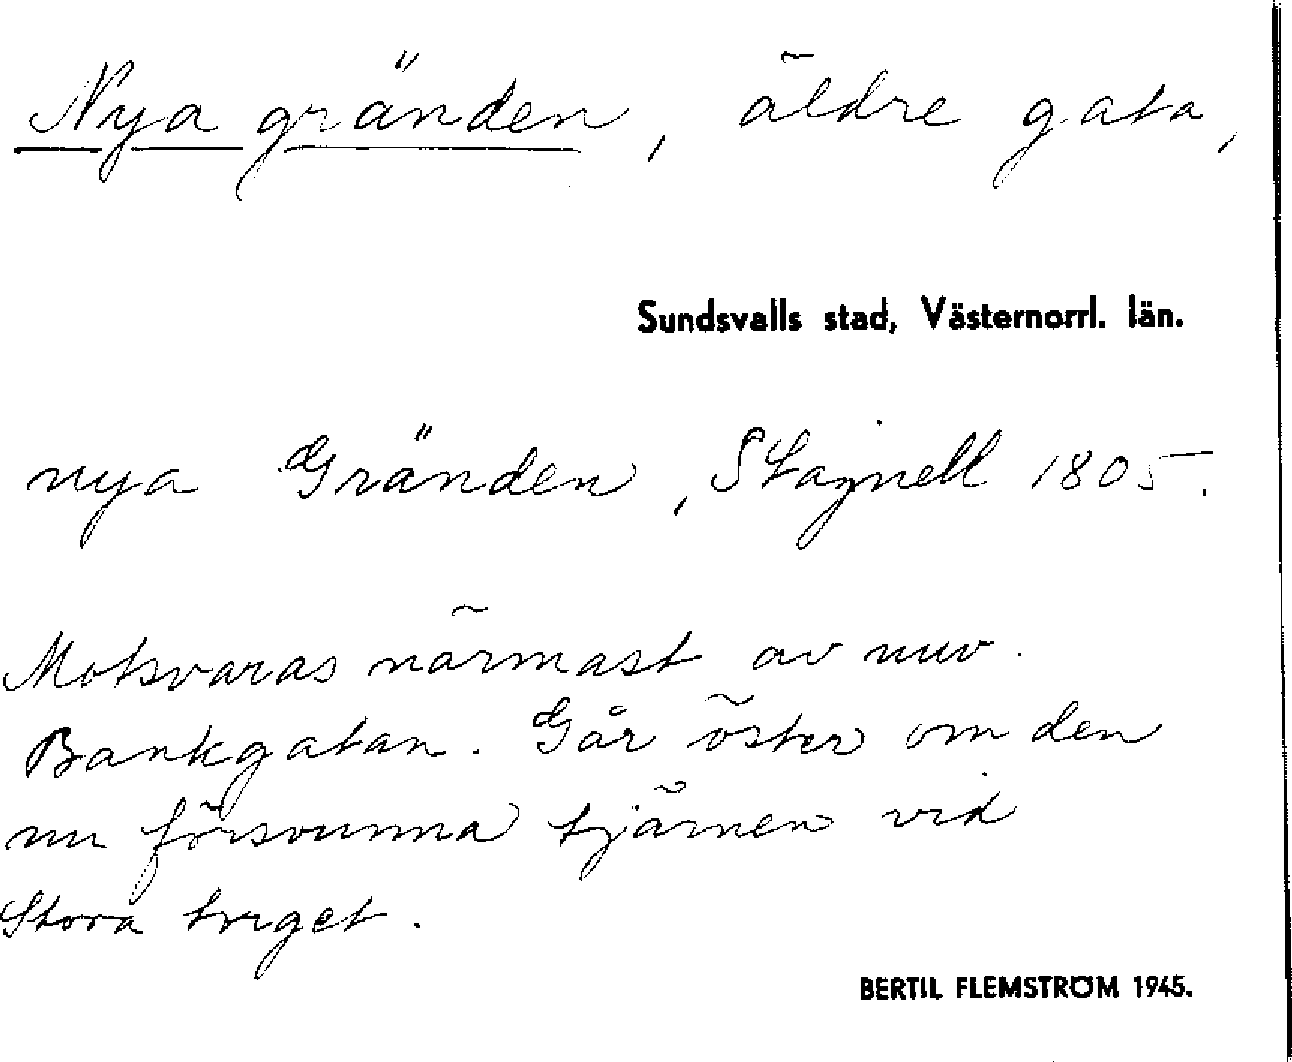 Nya gränden, äldre gata,
Sundsvalls stad, Västernorrl. län.
nya Gränden, Stagnell 1805.
Motsvaras närmast av nuv.
Bankgatan. Går öster om den
nu försvunna tjärnen vid
Stora torget.
BERTIL FLEMSTRÖM 1945.